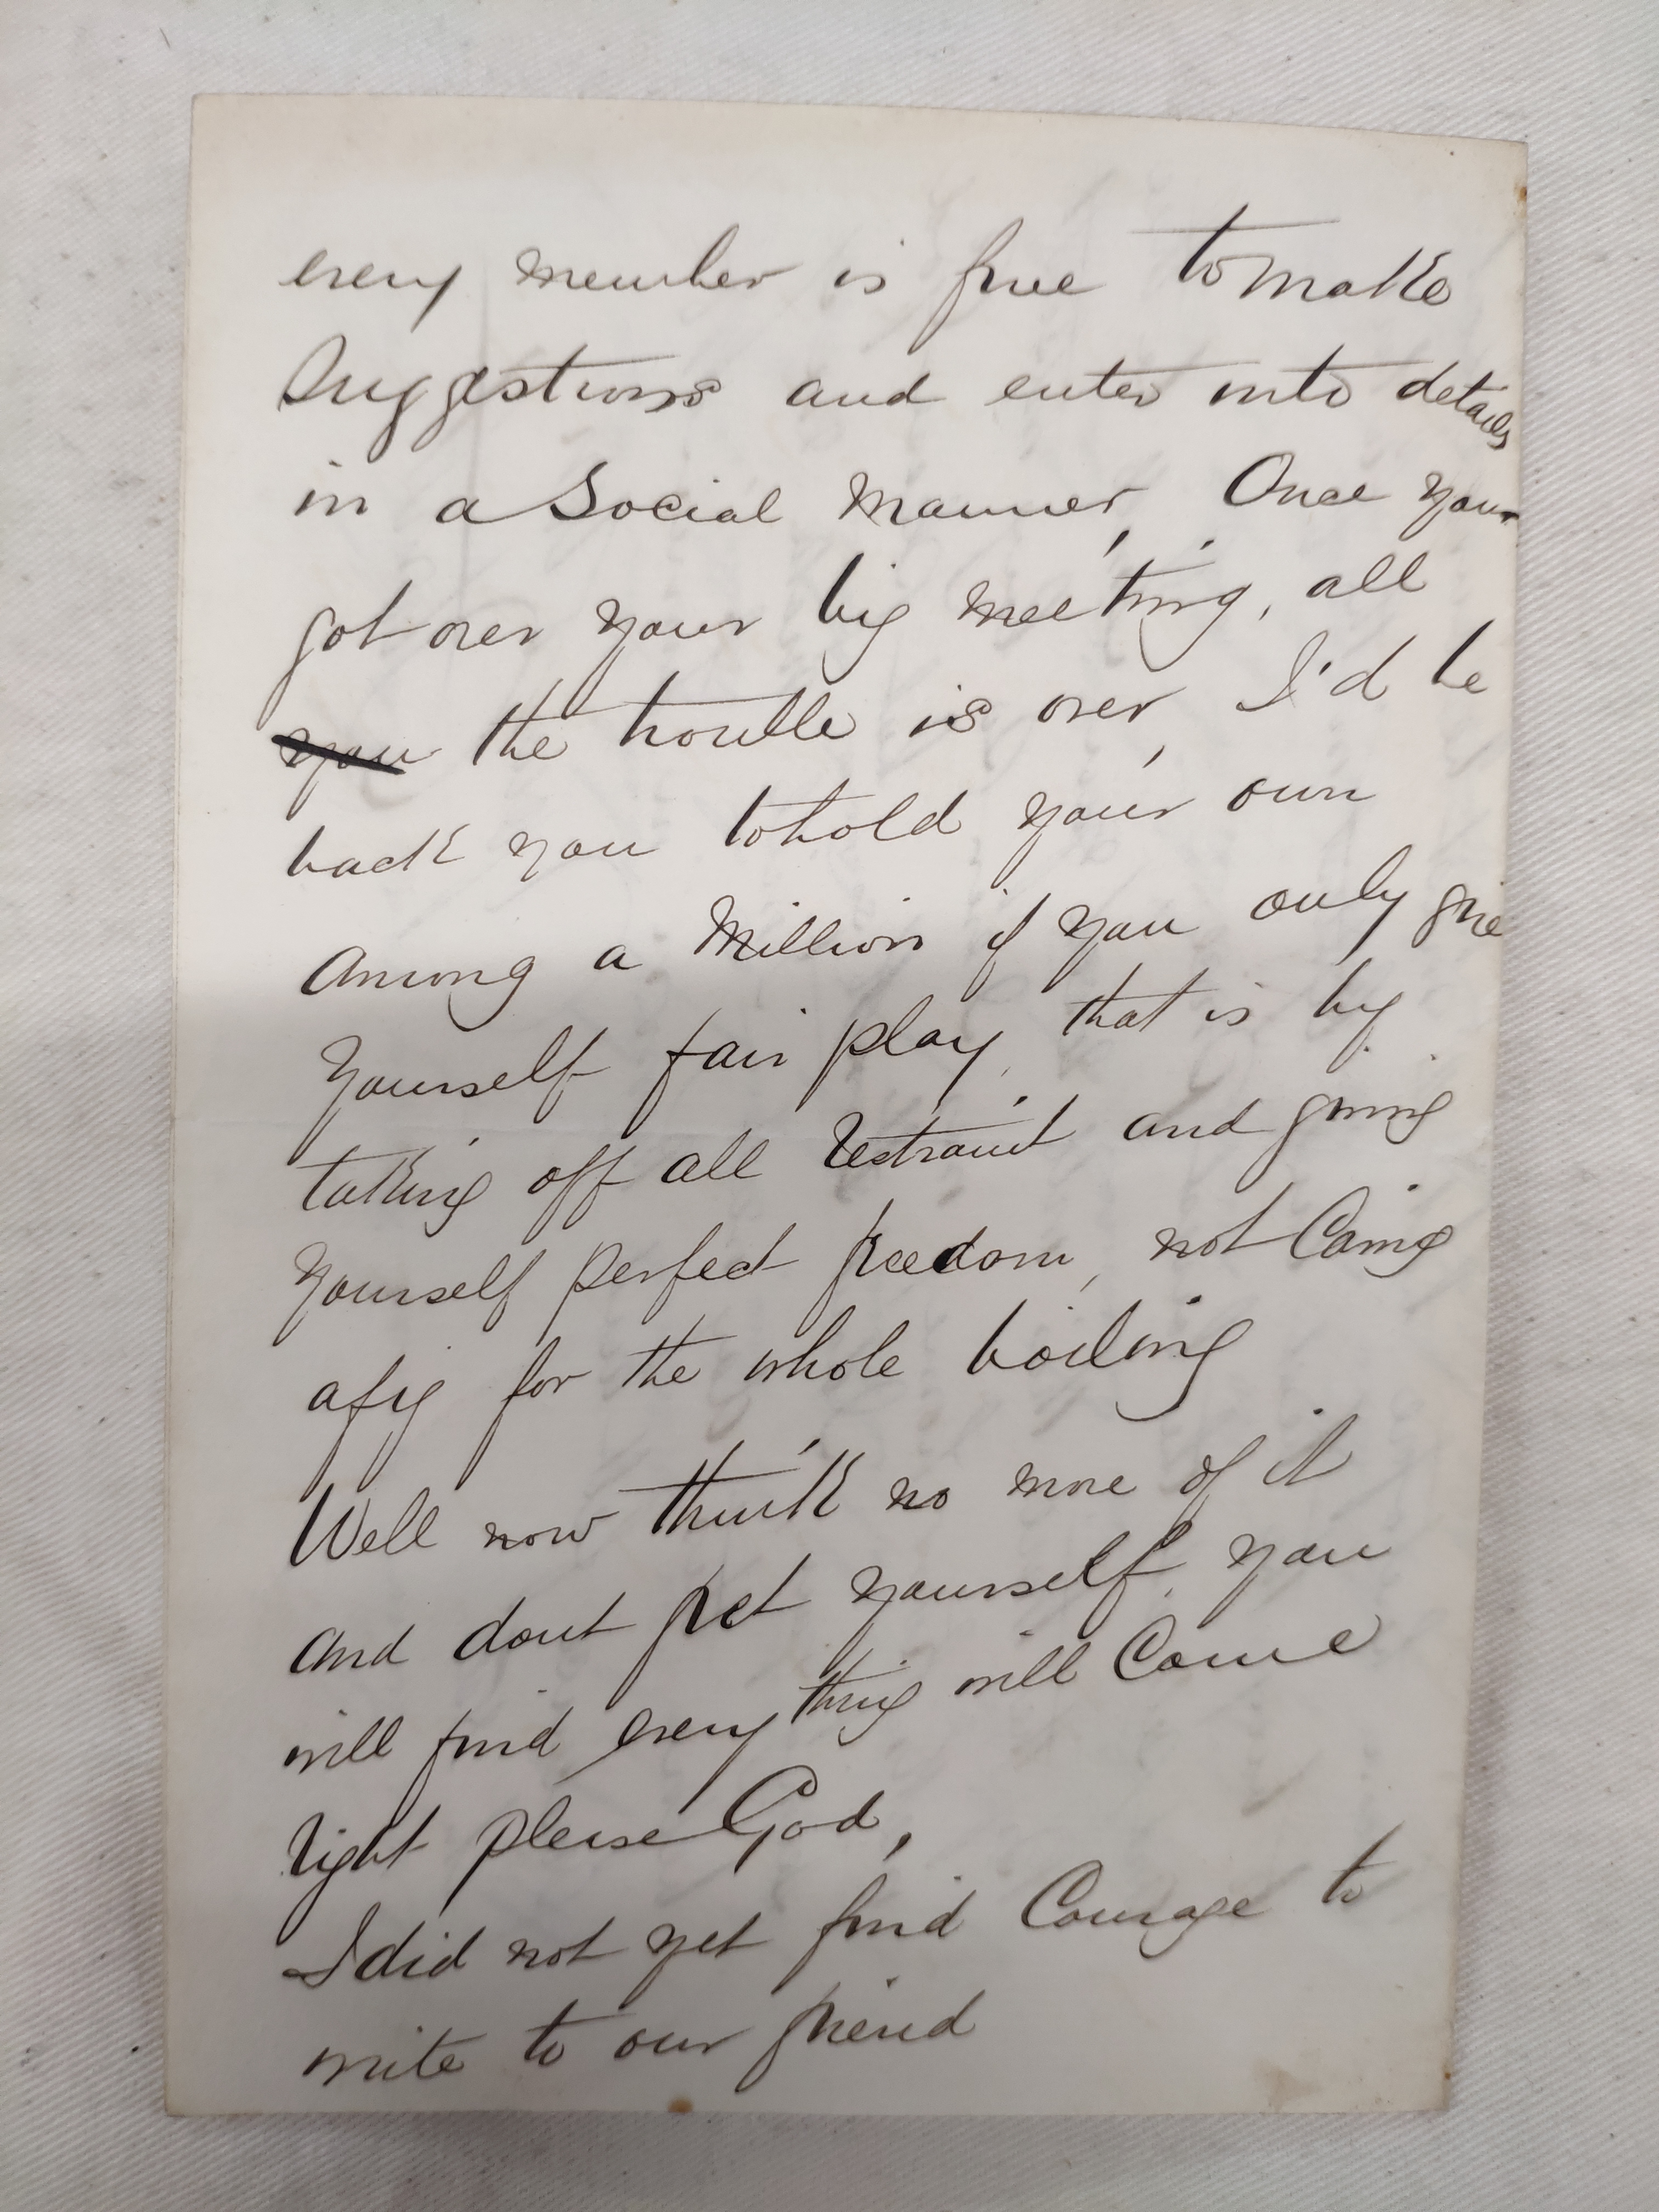 every member is free to make
Suggestions and enter into details
in a Social Manner, Once you
got over your big meeting, all
you the trouble is over, I'd be
back you to hold your own
Among a Million if you only give
Yourself fair play, that is by
taking off all restraint and giving
Yourself perfect freedom, not Caring
a fig for the whole boiling
Well now think no more of it
and dont fret yourself, you
will find every thing will Come
right please God,
I did not yet find Courage to
write to our friend